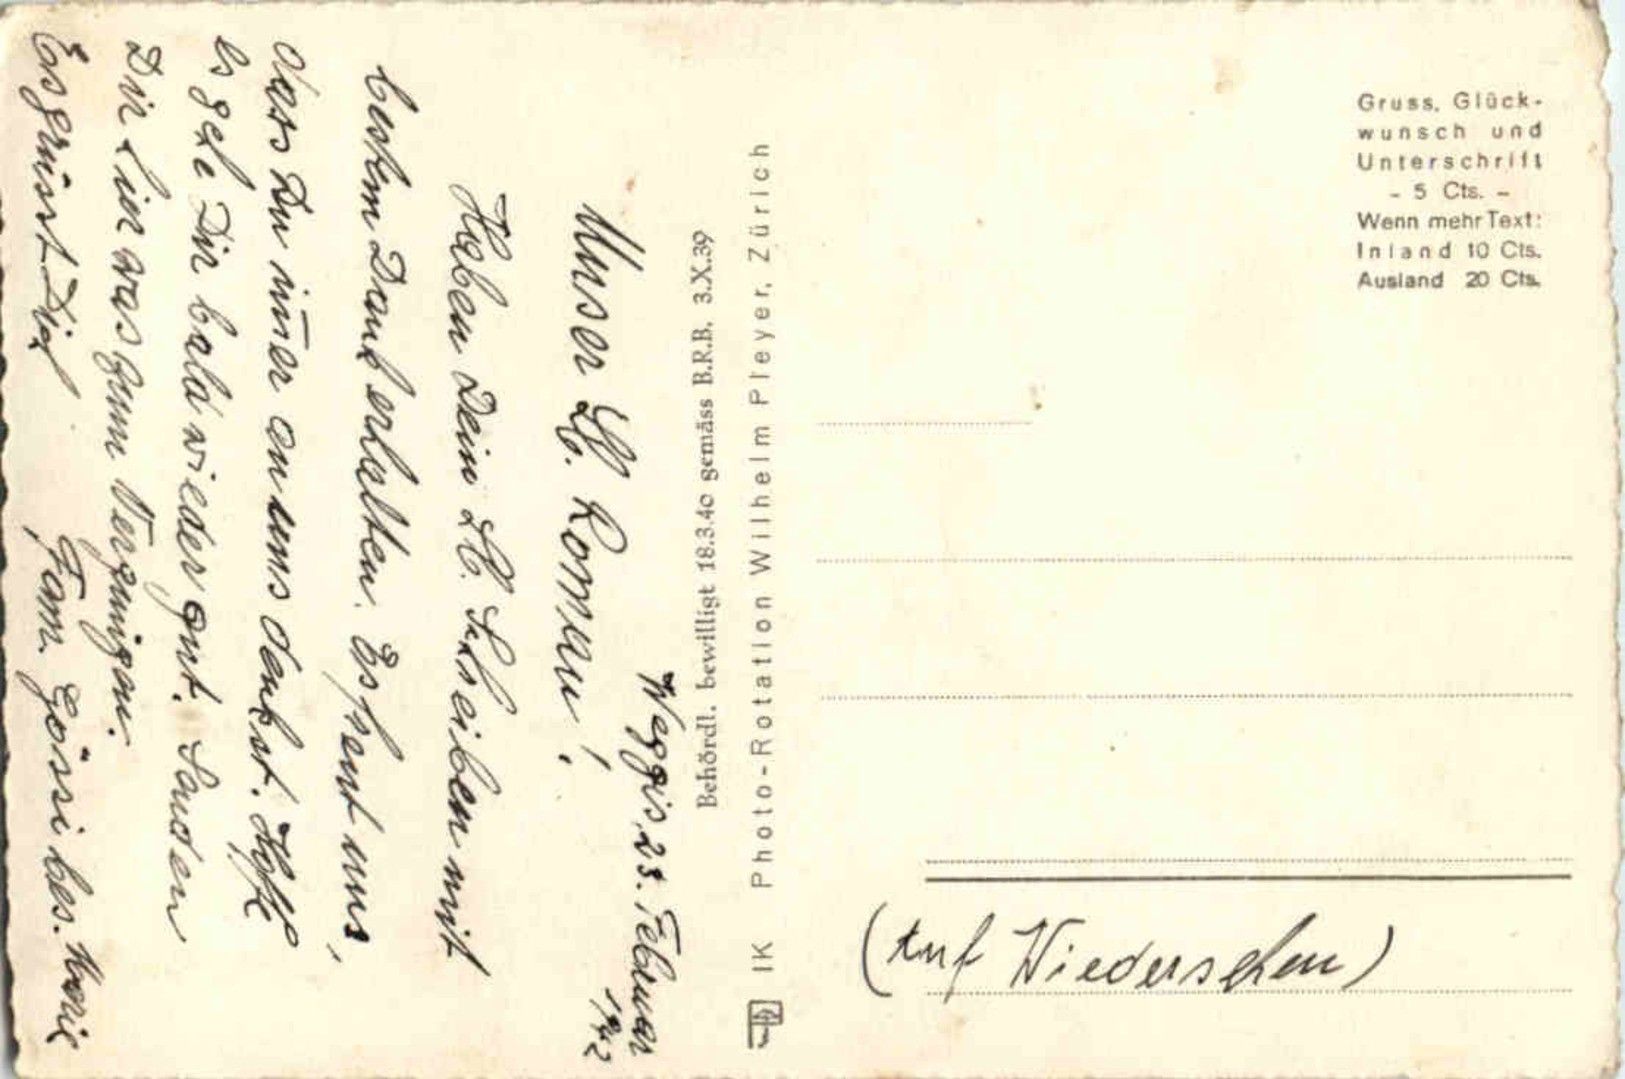 Weggis, 23. Februar
1942
Unser Lb. Roman!
Haben Dein Lb. Schreiben mit
bestem Dank erhalten. Es freut uns,
dass Du im̄er an uns denkst. Hoffe
es gehe Dir bald wieder gut. Senden
Dir hier was zum Vergnügen.
Es grüsst Dich
Fam. Gössi bes. Marie
Behördl. bewilligt 18.3.40 gemäss B.R.B. 3.X.39
IK Photo-Rotation Wilhelm Pleyer, Zürich
Gruss, Glück-
wunsch und
Unterschrift
- 5 Cts. -
Wenn mehr Text:
Inland 10 Cts.
Ausland 20 Cts.
(Auf Wiedersehen)